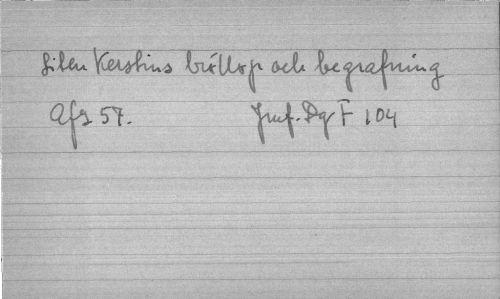 Liten Kerstins bröllop och begrafning
Afz 57. Jmf. Dg F 104